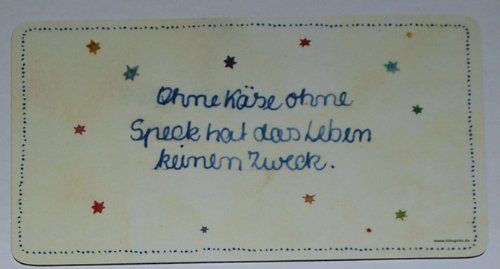 Ohne Käse ohne
Speck hat das Leben
keinen Zweck.